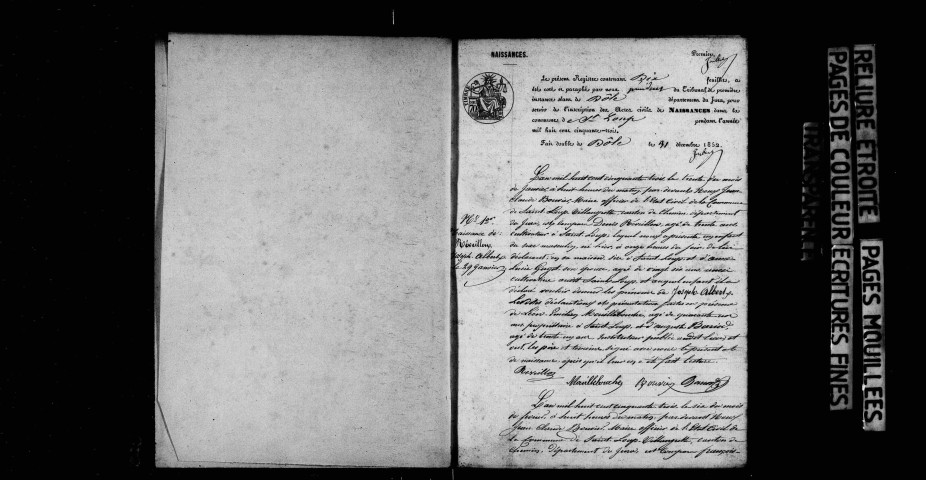 NAISSANCES.
Première
Le présent Registre contenant Dix feuilles, a
été coté et paraphé par nous président du Tribunal de première
instance séant de Dôle département du Jura, pour
servir de l'inscription des Actes civils de NAISSANCES dans la
commune de St Loup pendant l'année
mil huit cent cinquante-trois.
Fait double de Dôle le 31 décembre 1852.
L'an mil huit cent cinquante trois, le trente du mois
de Janvier, à huit heures du matin, par devant Nous Jean
Claude Bouvier, Maire officier de l'Etat Civil de la Commune
de Saint Loup Villangrette, canton de Chemin, département
du Jura, est comparu Denis Réveillon, agé de trente
cultivateur à Saint Loup, lequel nous a présenté un enfant
du sexe masculin, né hier, à onze heures du soir, de lui
déclarant, en sa maison, sise à Saint Loup, et d'Anne
son épouse, agée de vingt six ans
cultivatrice audit Saint Loup, et auquel enfant il a
déclaré vouloir donner les prénoms de Joseph Albert.
Lesdites déclaration et présentation faites en présence
de Léon agé de quarante
ans propriétaire à Saint Loup, et d'auguste
agé de trente ans Instituteur public audit lieu, et
ont, les père et témoins signé avec nous le présent acte
de naissance, après qu'il leur en a été fait lecture.
Réveillon
Bouvier
No 1er
Naissance de
Réveillon,
Joseph Albert,
le 29 Janvier
L'an mil huit cent cinquante trois, le six du mois
de février, à huit heures du matin, par devant Nous
Jean Claude Bouvier, Maire officier de l'Etat Civil de
la Commune de Saint Loup Villangrette, canton de
Chemin, département du Jura, est comparu François
RELIURE ETROITE
PAGES MOUILLEES
PAGES DE COULEUR
ECRITURES FINES
TRANSPARENTE